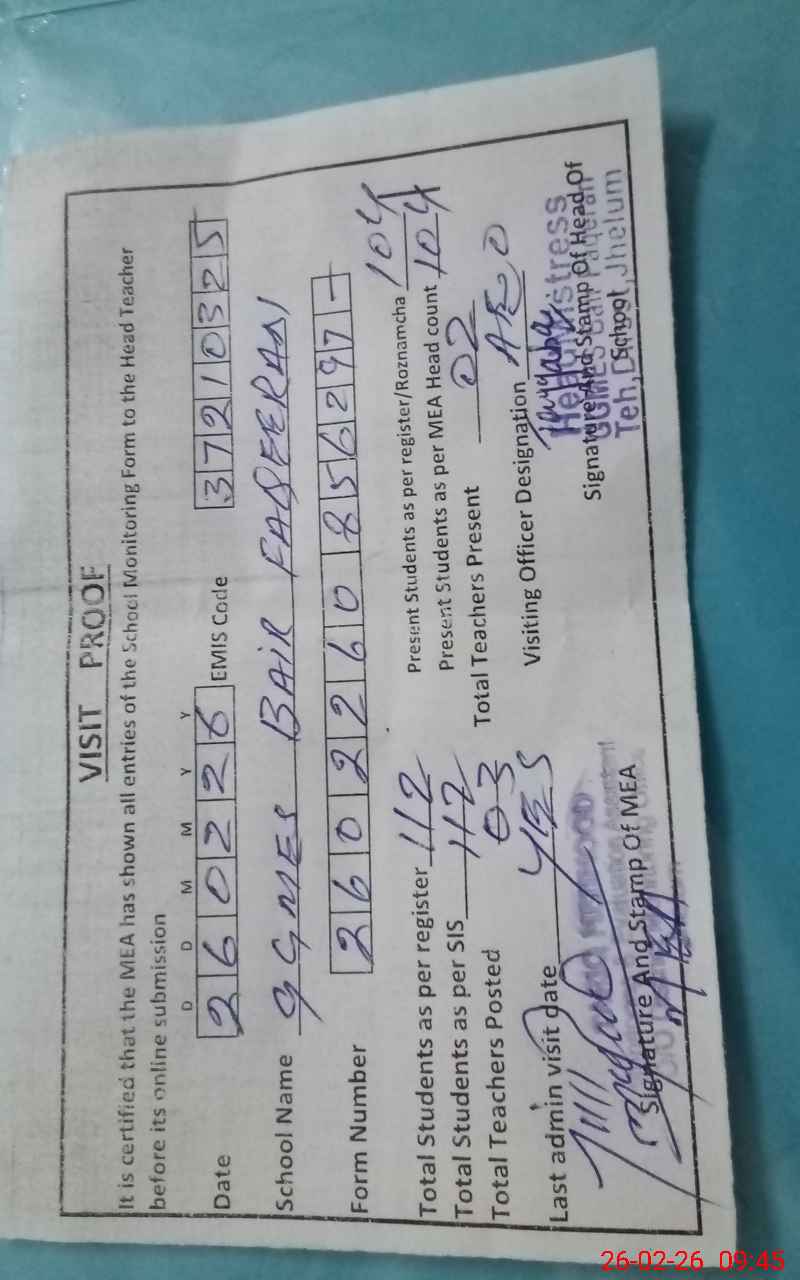 VISIT PROOF
It is certified that the MEA has shown all entries of the School Monitoring Form to the Head Teacher
before its online submission
D D M M Y Y
Date 260226 EMIS Code 37210325
School Name GGMES BAIR FAQEERAN
Form Number 260226085629 7-
Total Students as per register 112 Present Students as per register/Roznamcha 104
Total Students as per SIS 112 Present Students as per MEA Head count 104
Total Teachers Posted 03 Total Teachers Present 02
Last admin visit date YES Visiting Officer Designation AEO
Headmistress
Signature And Stamp Of MEA Signature And Stamp Of Head Of
School
GGMES Bair Faqeeran
Teh, Distt, Jhelum
MEA
26-02-26 09:45